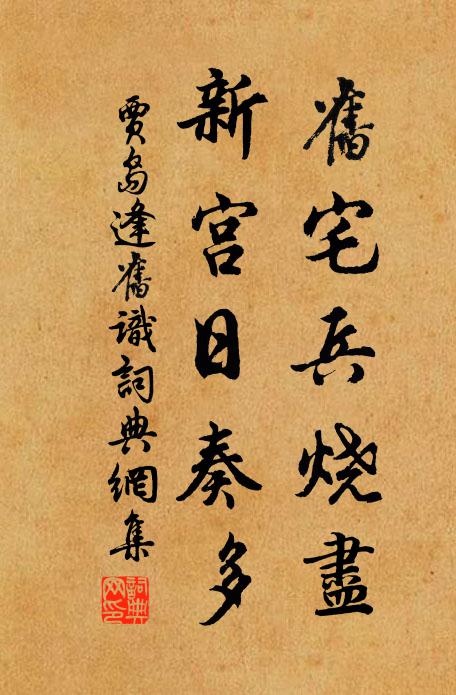 舊宅兵燒盡
新宮日奏多
賈島逢舊識詞典網集
詞典
網印